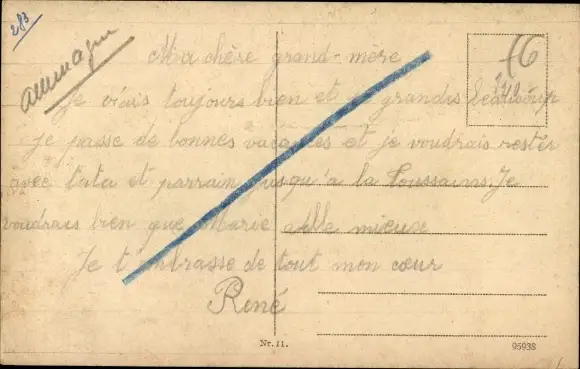 283
allemagne
16
Ma chère grand-mère
Je vais toujours bien et je grandis beaucoup
je passe de bonnes vacances et je voudrais rester
avec tata et parrain jusqu'a la Toussains. Je
voudrais bien que Marie aille mieux
Je t'embrasse de tout mon cœur
René
Nr. 11.
95938